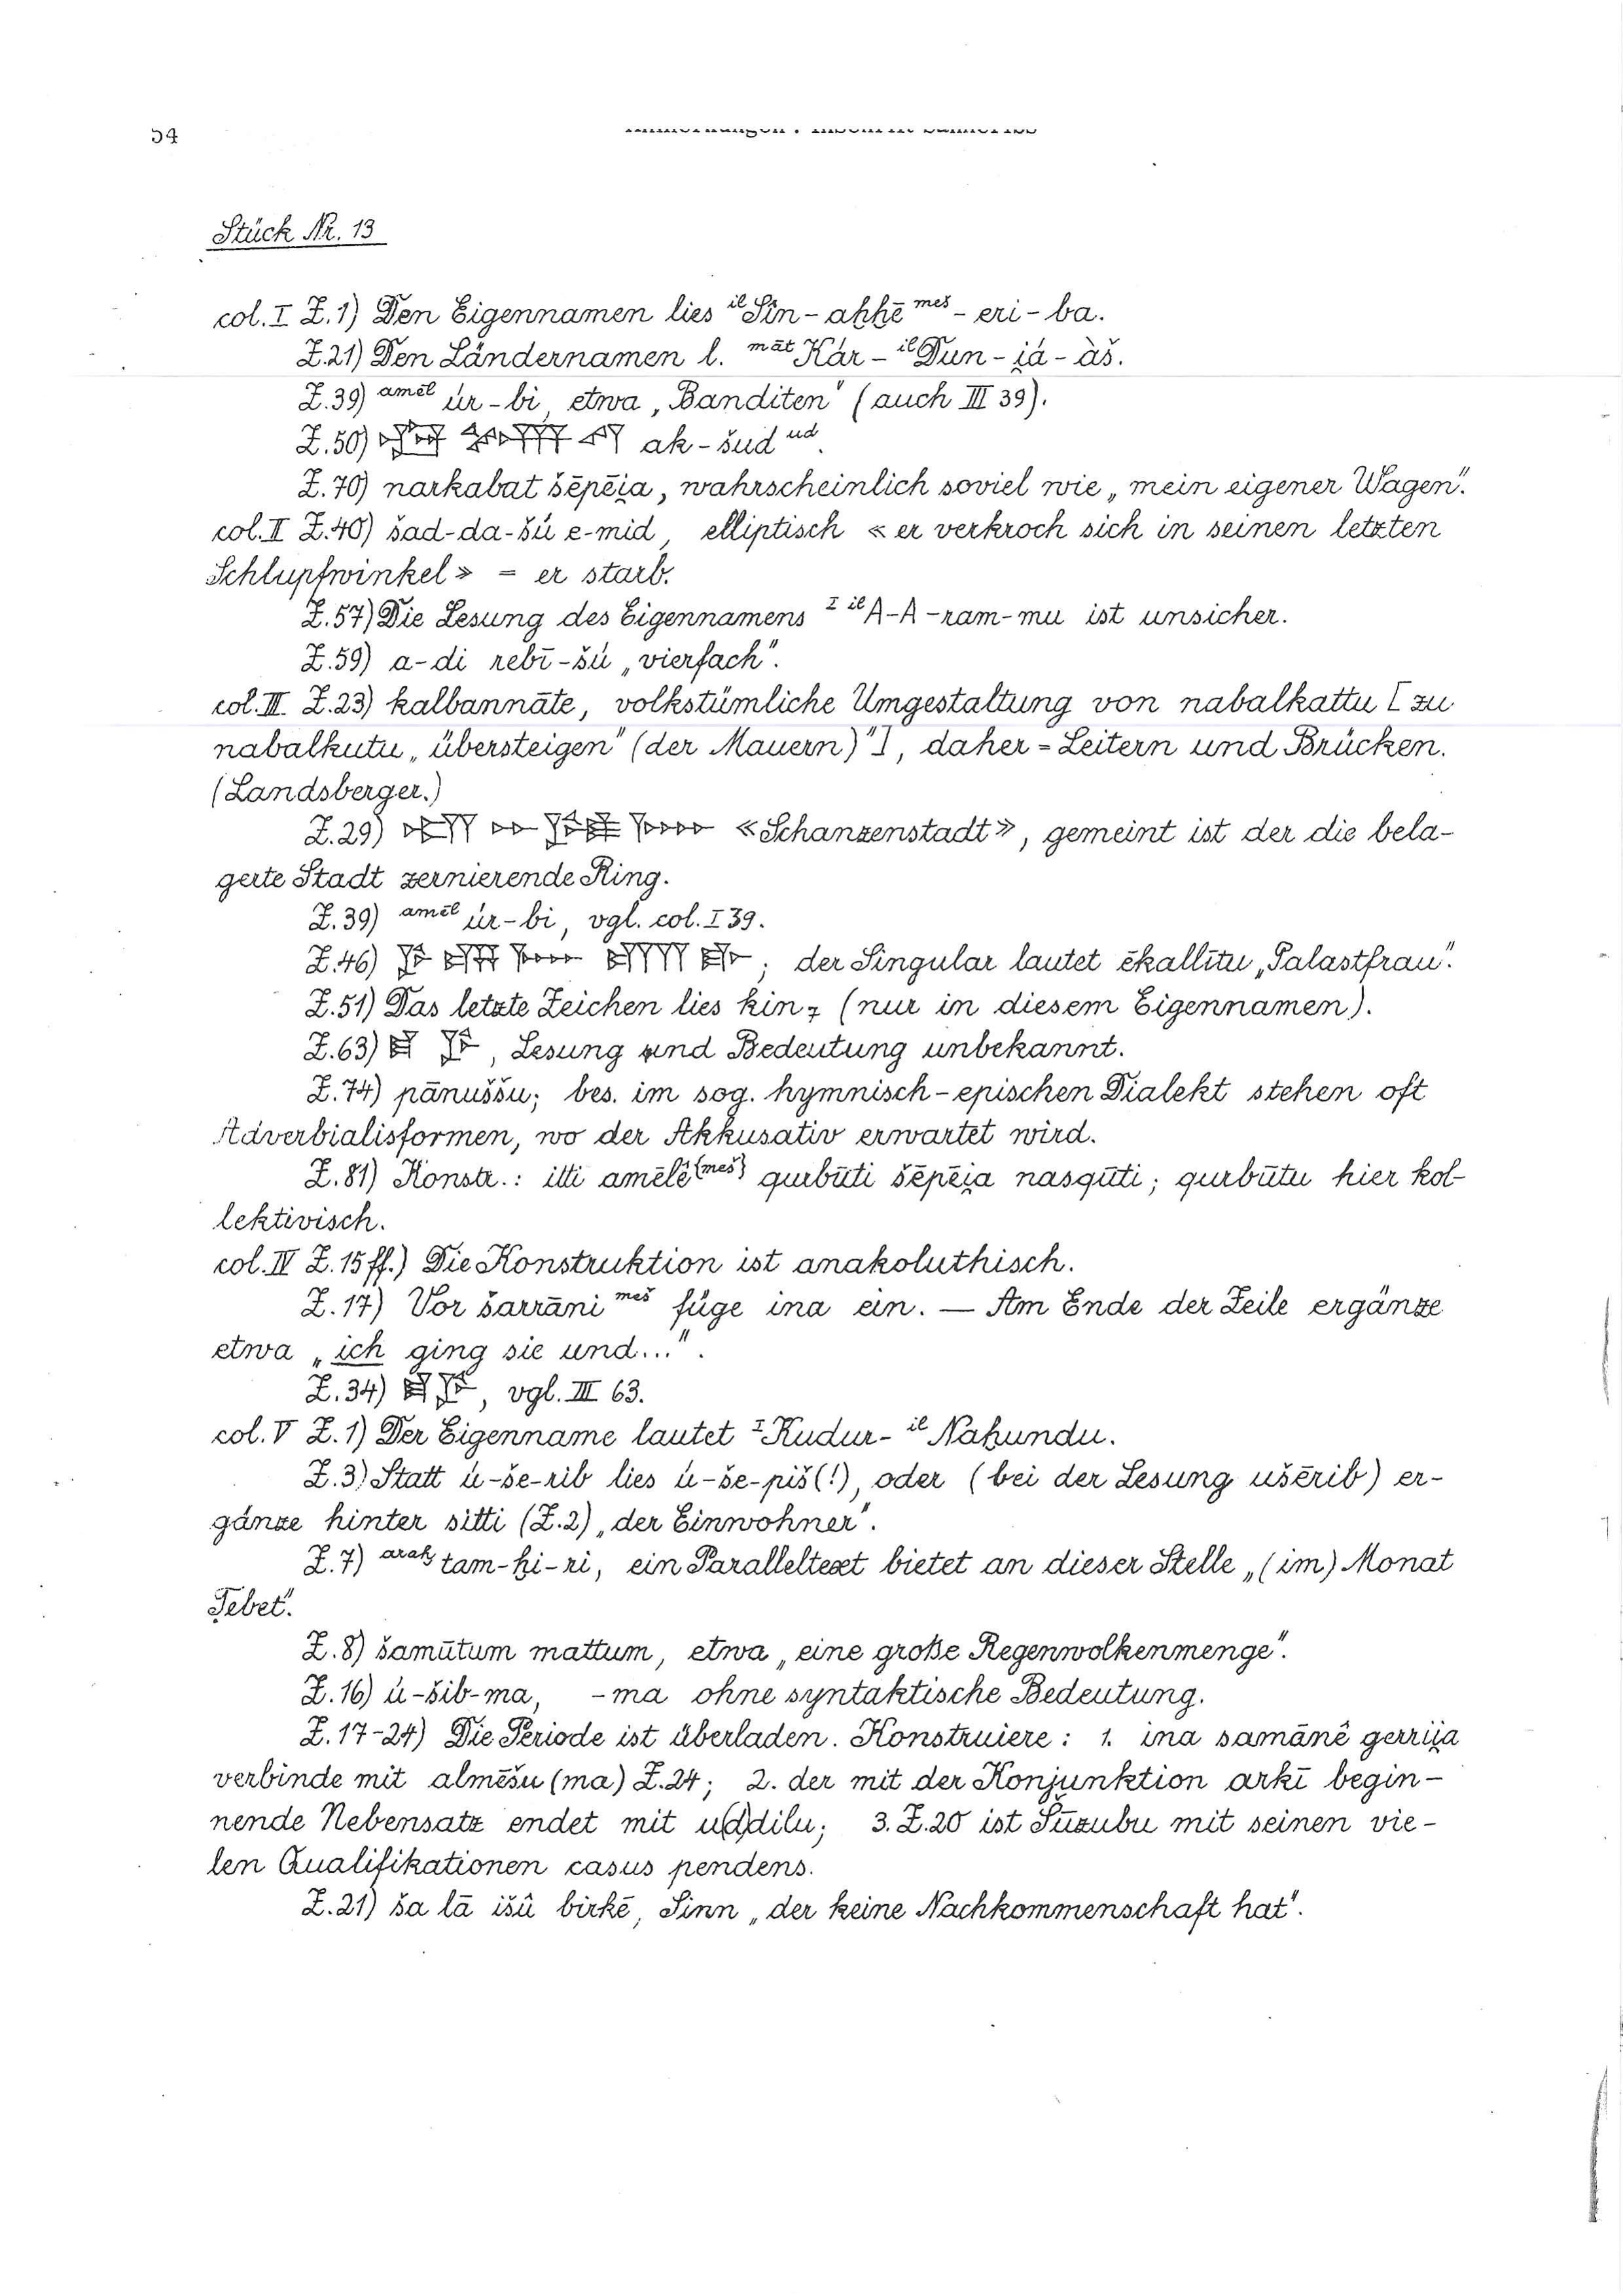 54
Anmerkungen : Inschrift Sanheribs
Stück Nr. 13
col. I Z.1) Den Eigennamen lies ⁱˡSîn-aḫḫē ᵐᵉˢ-eri-ba.
Z.21) Den Ländernamen l. ᵐᵃ̄ᵗKár-ⁱˡDun-i̯á-àš.
Z.39) ᵃᵐᵉ̄ˡúr-bi, etwa „Banditen" (auch III 39).
Z.50) ak-šud ᵘᵈ.
Z.70) narkabat šēpēi̯a, wahrscheinlich soviel wie „mein eigener Wagen".
col. II Z.40) šad-da-šú e-mid, elliptisch «er verkroch sich in seinen letzten
Schlupfwinkel» = er starb.
Z.57) Die Lesung des Eigennamens ᴵ ⁱˡA-A-ram-mu ist unsicher.
Z.59) a-di rebī-šú „vierfach".
col. III Z.23) kalbannāte, volkstümliche Umgestaltung von nabalkattu [zu
nabalkutu „übersteigen" (der Mauern)"], daher = Leitern und Brücken.
(Landsberger.)
Z.29) «Schanzenstadt», gemeint ist der die bela-
gerte Stadt zernierende Ring.
Z.39) ᵃᵐᵉ̄ˡúr-bi, vgl. col. I 39.
Z.46) ; der Singular lautet ēkallītu „Palastfrau".
Z.51) Das letzte Zeichen lies kin₇ (nur in diesem Eigennamen).
Z.63) , Lesung und Bedeutung unbekannt.
Z.74) pānuššu; bes. im sog. hymnisch-epischen Dialekt stehen oft
Adverbialisformen, wo der Akkusativ erwartet wird.
Z.81) Konstr.: itti amēlē⁽ᵐᵉˢ⁾ qurbūti šēpēi̯a nasqūti; qurbūtu hier kol-
lektivisch.
col. IV Z.15 ff.) Die Konstruktion ist anakoluthisch.
Z.17) Vor šarrāni ᵐᵉˢ̌ füge ina ein. — Am Ende der Zeile ergänze
etwa „ich ging sie und...".
Z.34) , vgl. III 63.
col. V Z.1) Der Eigenname lautet ᴵKudur-ⁱˡNaḫundu.
Z.3) Statt ú-še-rib lies ú-še-piš(!), oder (bei der Lesung ušērib) er-
gänze hinter sitti (Z.2) „der Einwohner".
Z.7) ᵃʳᵃḫtam-ḫi-ri, ein Paralleltext bietet an dieser Stelle „(im) Monat
Ṭebet".
Z.8) šamūtum mattum, etwa „eine große Regenwolkenmenge".
Z.16) ú-šib-ma, -ma ohne syntaktische Bedeutung.
Z.17-24) Die Periode ist überladen. Konstruiere: 1. ina samānê gerrii̯a
verbinde mit almēšu(ma) Z.24; 2. der mit der Konjunktion arkī begin-
nende Nebensatz endet mit u(d)dilu; 3. Z.20 ist Šūzubu mit seinen vie-
len Qualifikationen casus pendens.
Z.21) ša lā išû birkē, Sinn „der keine Nachkommenschaft hat".